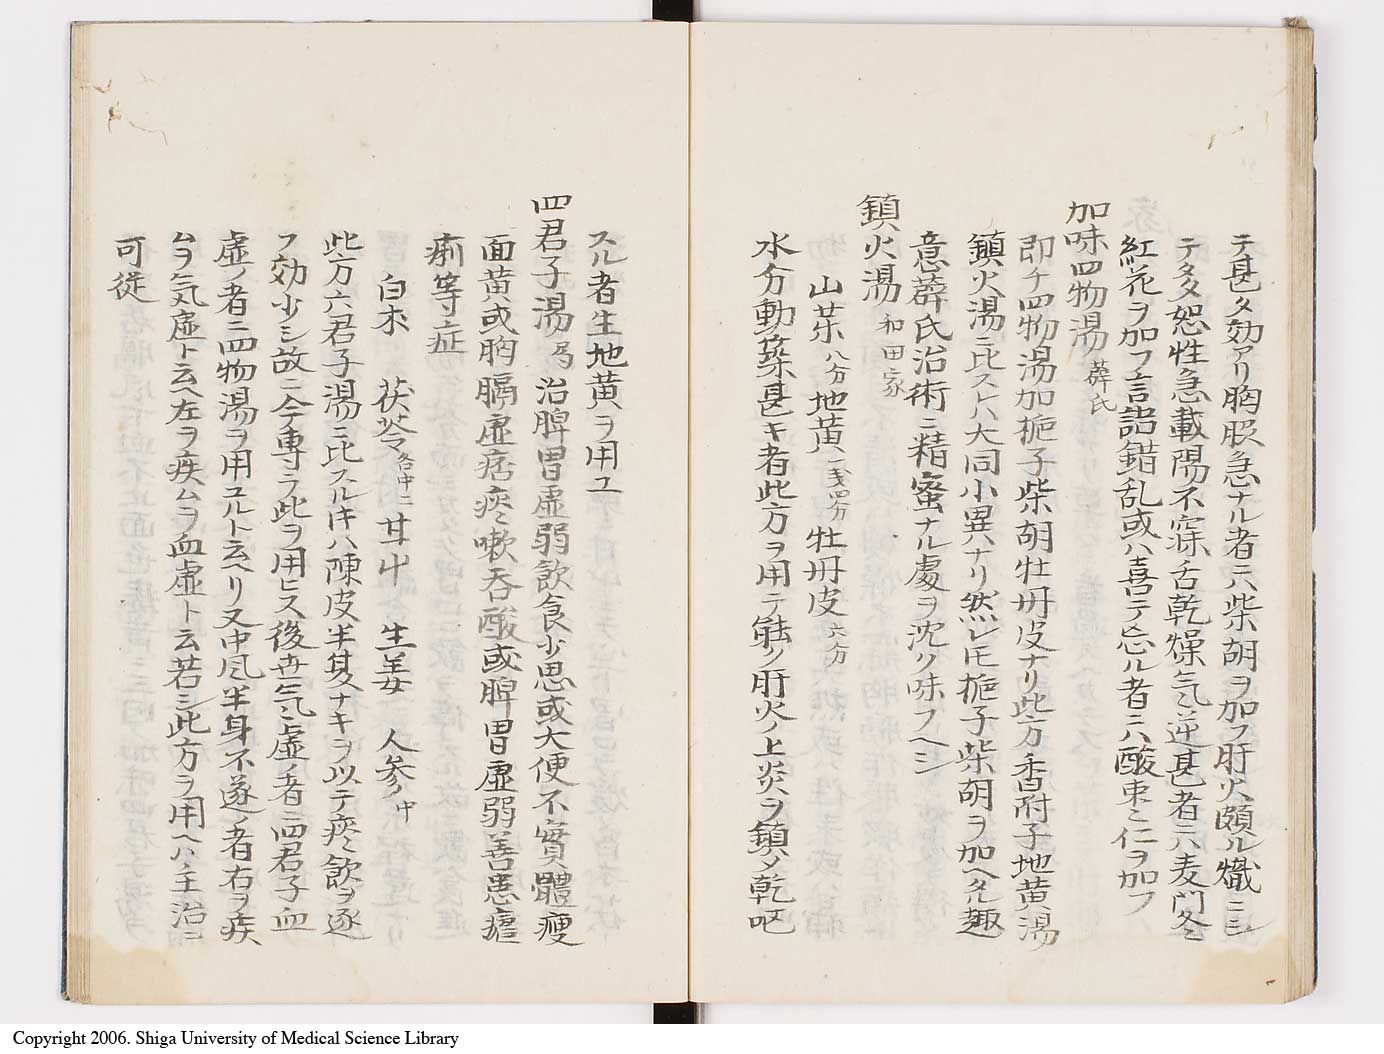 テ甚タ効アリ胸脹急ナル者ニハ柴胡ヲ加フ肝火頗ル熾ニシ
テタタ恕性急載陽不寐舌乾燥気逆甚者ニハ麦門冬
紅花ヲ加フ言語錯乱或ハ喜テ忘ル者ニハ酸棗仁ヲ加フ
加味四物湯 薛氏
即チ四物湯加梔子柴胡牡丹皮ナリ此方香附子地黄湯
鎮火湯ニ比スレハ大同小異ナリ然レモ梔子柴胡ヲ加ヘタル趣
意薛氏治術ニ精蜜ナル処ヲ沈ク味フヘシ
鎮火湯 和田家
山茱八分 地黄一戔四分 牡丹皮六分
水分動築甚キ者此方ヲ用テ能ク肝火ノ上炎ヲ鎮メ乾呕
スル者生地黄ヲ用ユ
四君子湯 局 治脾胃虚弱飲食少思或大便不實體瘦
面黄或胸膈虚痞痰嗽呑酸或脾胃虚弱善患瘧
痢等症
白朮 茯苓各中ニ 甘中 生姜 人参中
此方六君子湯ニ比スルキハ陳皮半夏ナキヲ以テ痰飲ヲ逐
フ効少シ故ニ今専ラ此ヲ用ヒス後世気虚ノ者ニ四君子血
虚ノ者ニ四物湯ヲ用ユルト云ヘリ又中風半身不遂ノ者右ヲ疾
ムヲ気虚ト云ヘ左ヲ疾ムヲ血虚ト云若シ此方ヲ用ヘハ主治ニ
可従
Copyright 2006. Shiga University of Medical Science Library